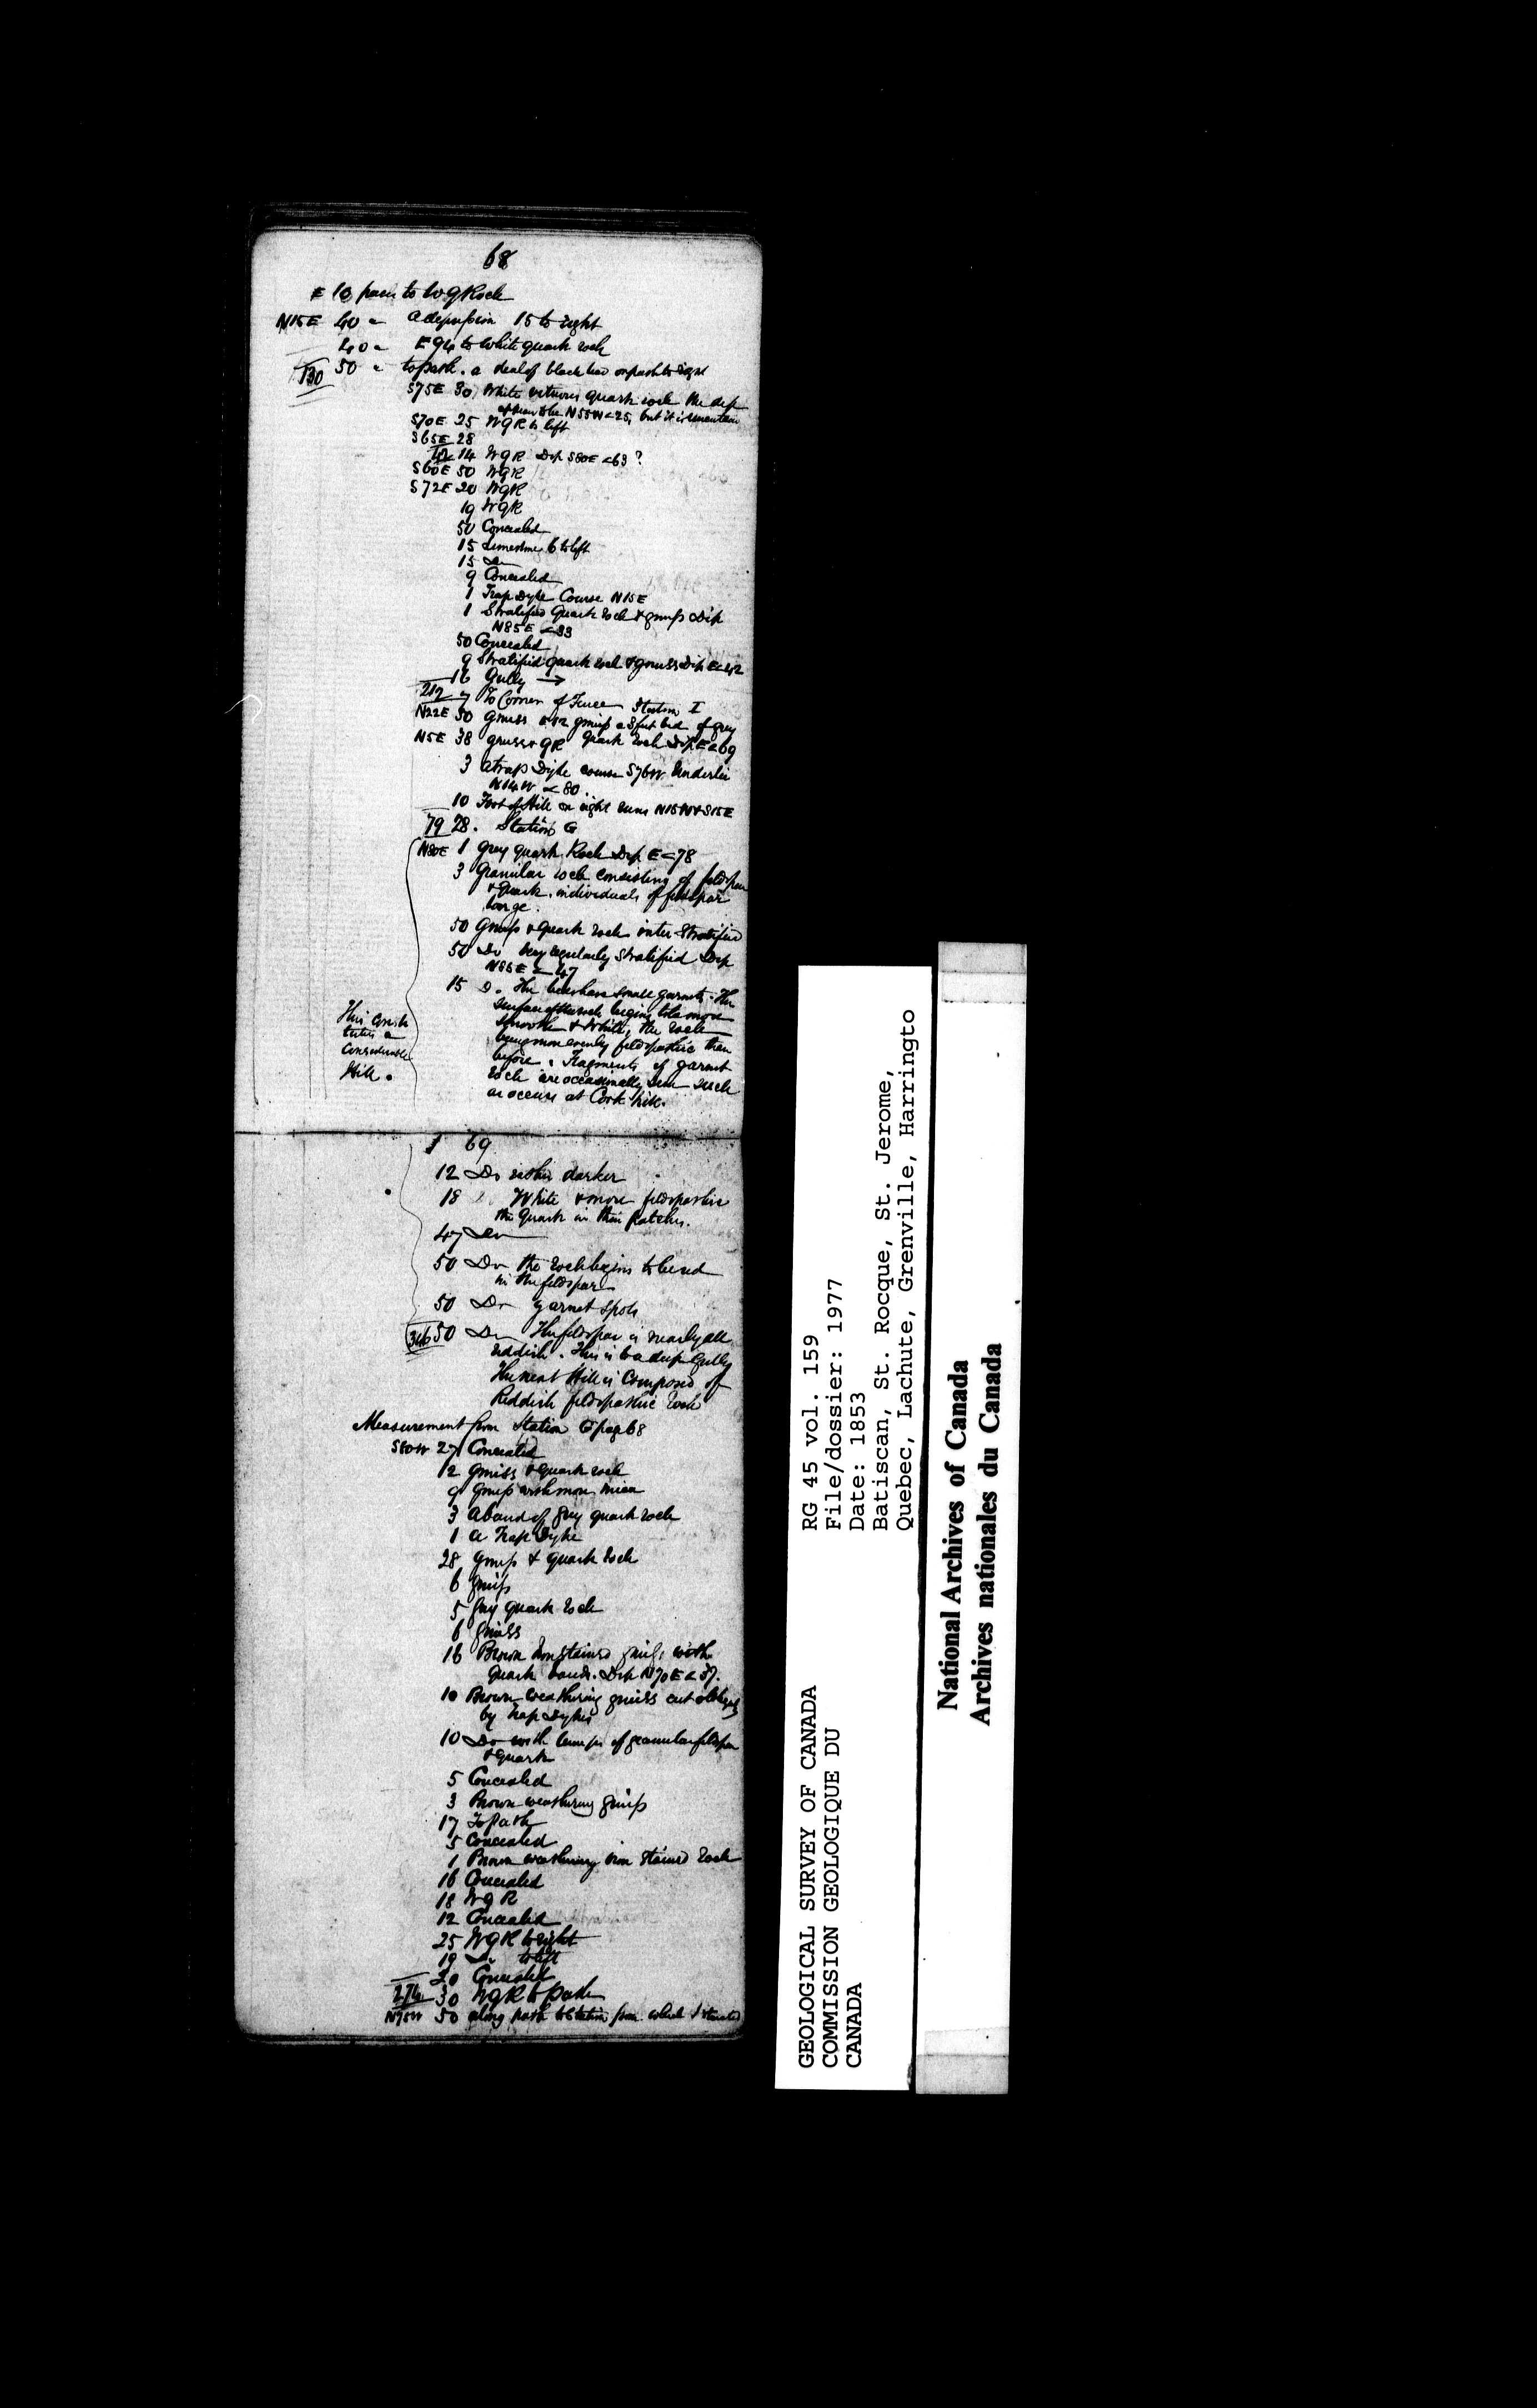 68
E 10 paces to W q Rock
N15E 40 " a depression 15 to right
40 " E 94 to white quartz rock
130 50 " to path. a deal of black lead on path to right
S75E 30 White vitreous quartz rock the dip
N55W <25, but it is uncertain
S70E 25 WqR to left
S65E 28
42 14 WqR Dip S80E <63 ?
S60E 50 WqR
S72E 20 WqR
19 WqR
50 Concealed
15 Limestone 6 to left
15 Do
9 Concealed
1 Trap Dyke Course N15E
1 Stratified Quartz rock & gneiss Dip
N85E <33
50 Concealed
9 Stratified quartz rock & gneiss Dip E<42
16 Gully →
212 7 To Corner of Fence Station I
N22E 50 gneiss gneiss a 3 feet bed of grey
N5E 38 gneiss & qR quartz rock Dip E<69
3 a trap Dyke course S76W Underlie
N14W <80.
10 Foot of Hill on right runs N15W & S15E
79 28. Station G
N80E 1 grey quartz Rock Dip E<78
3 Granular rock consisting of feldspar
& quartz. individuals of feldspar
large.
50 Gneiss & quartz rock inter-stratified
50 Do very regularly stratified Dip
N85E <47
15 Do The beds have small garnets. The
surface of the rock begins to be more
smooth & white, the rock
being more evenly feldspathic than
before. Fragments of garnet
rock are occasionally seen such
as occurs at Cork hill.
This consti
tutes a
Considerable
Hill.
69
12 Do rather darker
18 White & more feldspathic
the quartz in thin patches.
47 Do
50 Do the rock begins to be red
in the feldspar
50 Do garnet spots
346 50 Do The feldspar is nearly all
reddish. This is to a deep Gully
The next Hill is Composed of
Reddish feldspathic rock
Measurement from Station G page 68
S80W 27 Concealed
12 gneiss & quartz rock
9 Gneiss with more mica
3 A band of grey quartz rock
1 a Trap Dyke
28 gneiss & quartz rock
6 gneiss
5 grey quartz rock
6 gneiss
16 Brown iron stained gneiss with
quartz bands. Dip N70E <37.
10 Brown weathering gneiss cut obliquely
by trap dykes
10 Do with lumps of granular feldspar
& quartz
5 Concealed
3 Brown weathering gneiss
17 To path
5 Concealed
1 Brown weathering iron stained rock
16 Concealed
18 WqR
12 Concealed
25 WqR to right
19 Do to left
20 Concealed
274 30 WqR to path
N75W 50 along path to station from which I started
GEOLOGICAL SURVEY OF CANADA RG 45 vol. 159
COMMISSION GEOLOGIQUE DU File/dossier: 1977
CANADA Date: 1853
Batiscan, St. Rocque, St. Jerome,
Quebec, Lachute, Grenville, Harringto
National Archives of Canada
Archives nationales du Canada